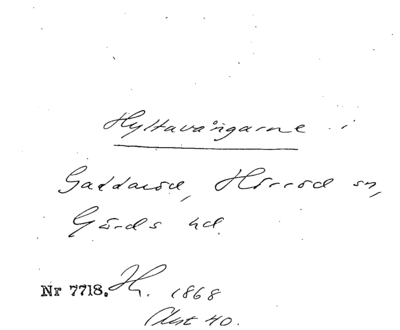 Hyltavångarne i
Gaddaröd, Hörröd sn,
Gärds hd.
Nr 7718. H. 1868
Akt 40.